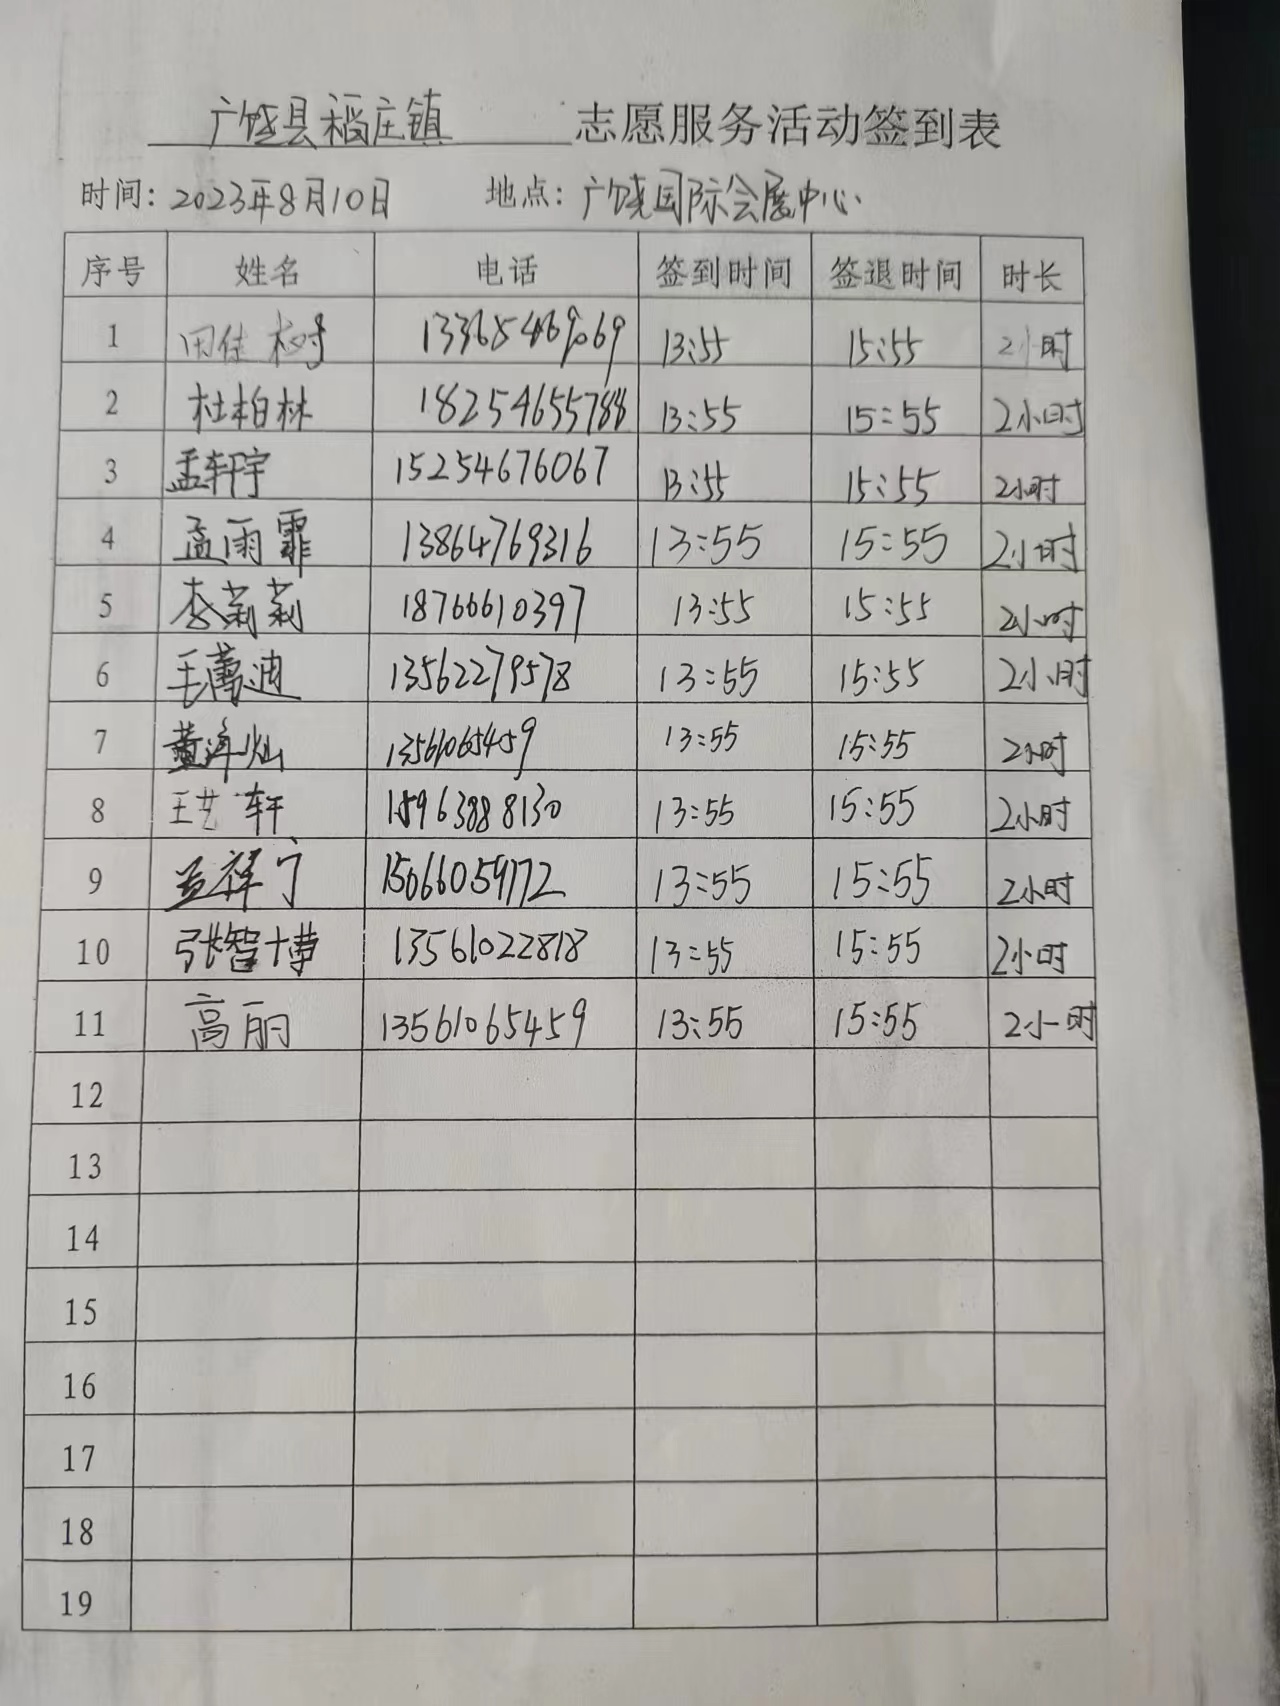 广饶县稻庄镇 志愿服务活动签到表
时间：2023年8月10日 地点：广饶国际会展中心
序号 姓名 电话 签到时间 签退时间 时长
1 田佳树 13365469069 13:55 15:55 2小时
2 杜柏林 18254655788 13:55 15:55 2小时
3 孟轩宇 15254676067 13:55 15:55 2小时
4 孟雨霏 13864769316 13:55 15:55 2小时
5 李莉莉 18766610397 13:55 15:55 2小时
6 13562279578 13:55 15:55 2小时
7 13561065459 13:55 15:55 2小时
8 王艺轩 15963888130 13:55 15:55 2小时
9 孟祥宁 15066059172 13:55 15:55 2小时
10 张智博 13561022818 13:55 15:55 2小时
11 高丽 13561065459 13:55 15:55 2小时
12
13
14
15
16
17
18
19